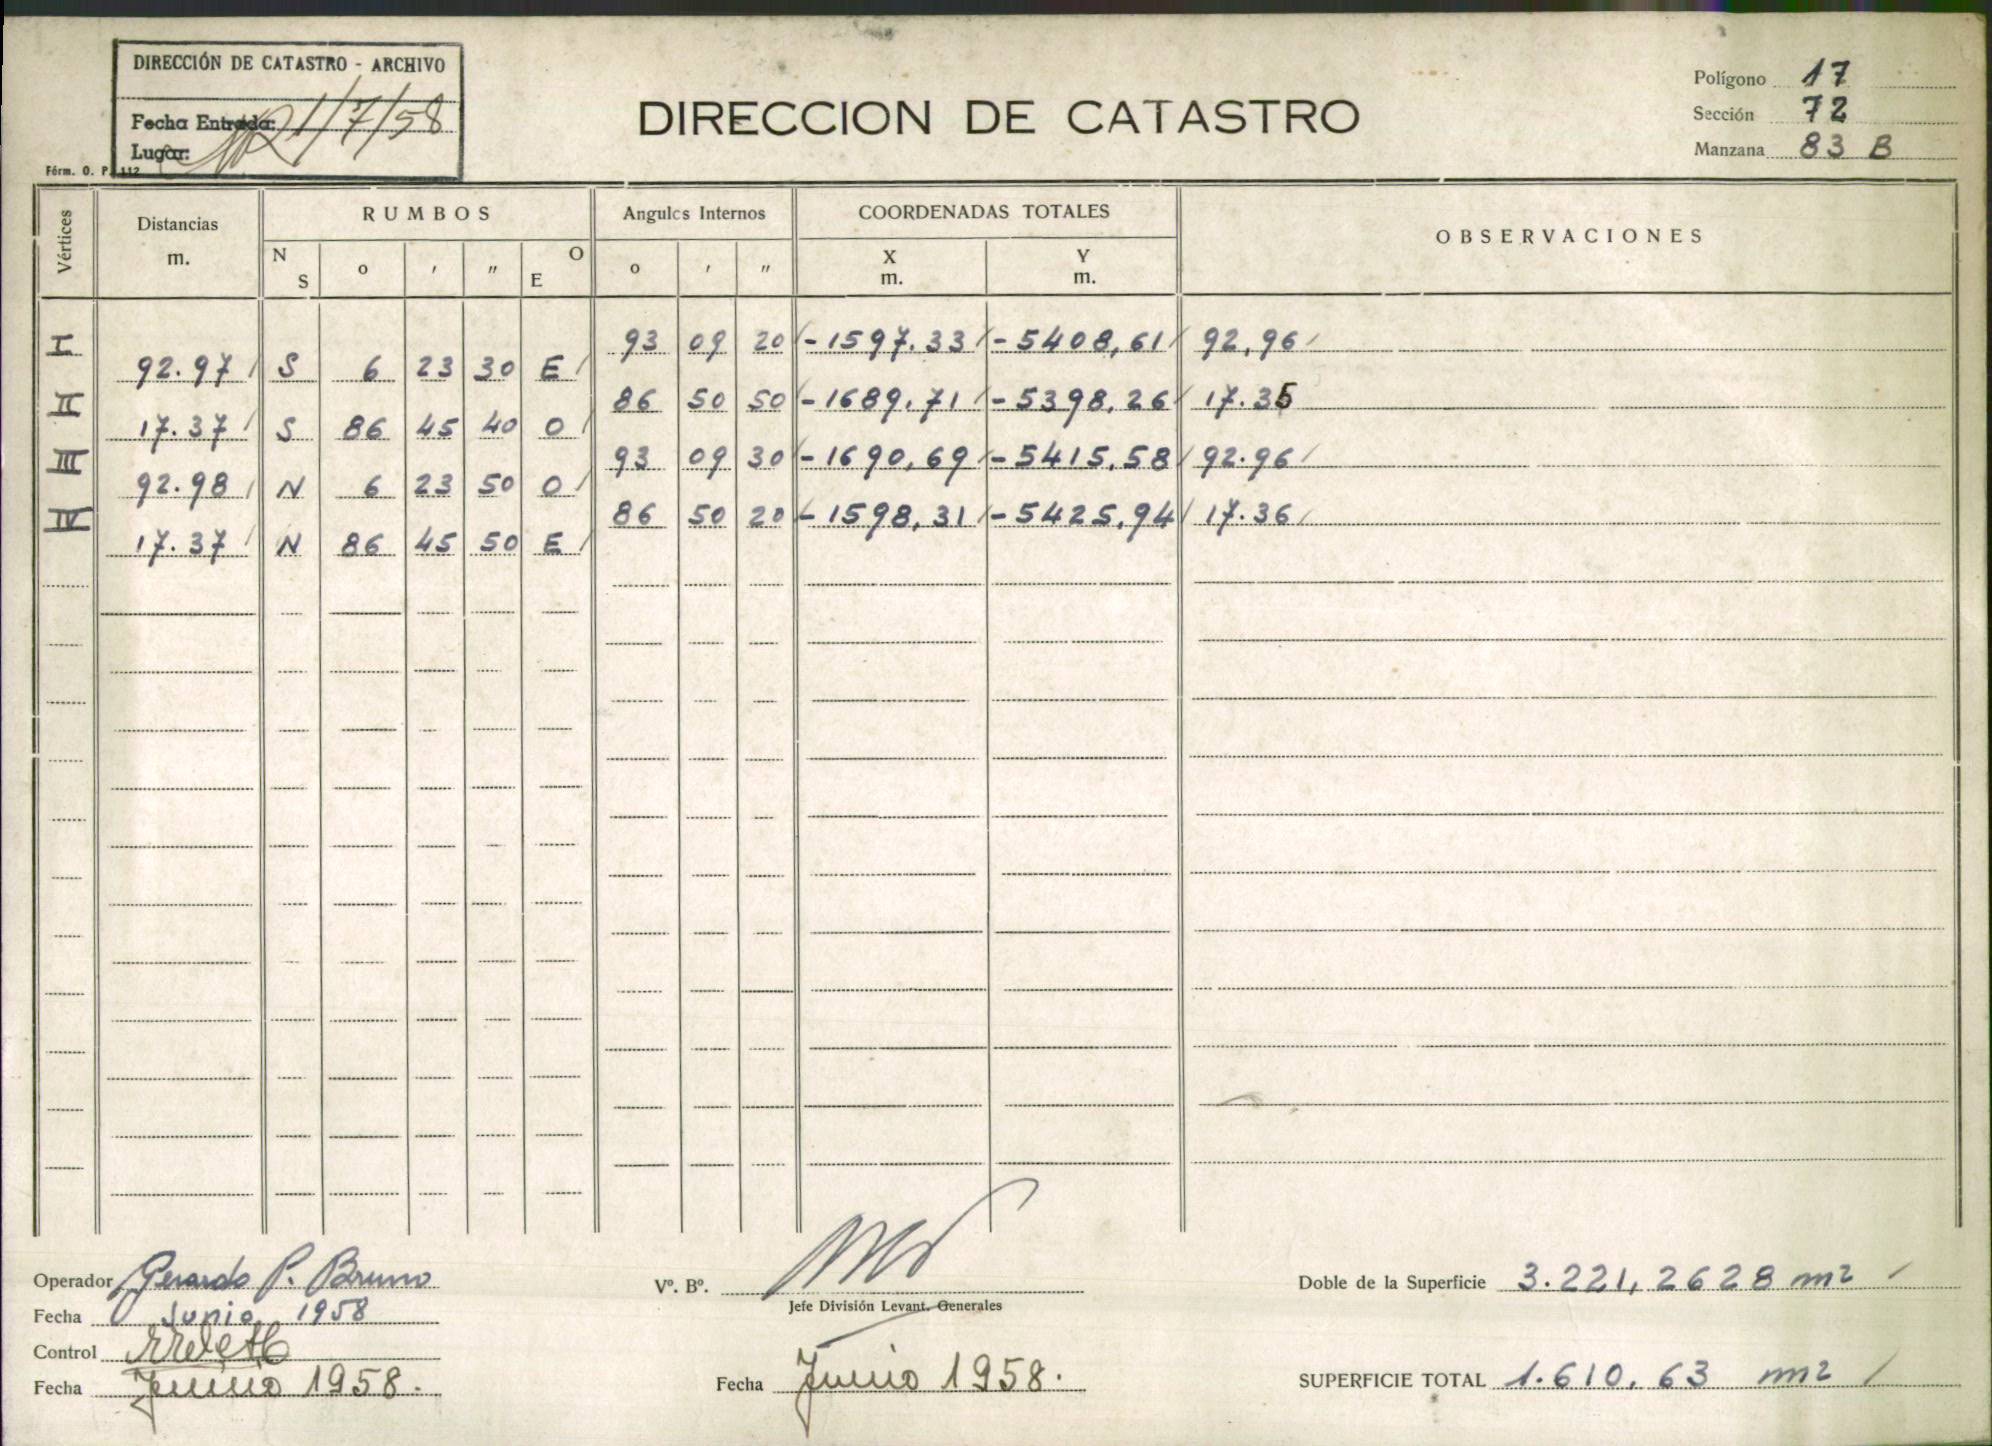 DIRECCIÓN DE CATASTRO - ARCHIVO
Fecha Entrada: 1/7/58
Lugar:
Fórm. O. P. 112
DIRECCION DE CATASTRO
Polígono 17
Sección 72
Manzana 83 B
Vértices Distancias m. RUMBOS Angulos Internos COORDENADAS TOTALES OBSERVACIONES
N S o ' " O E o ' " X m. Y m.
I 93 09 20 -1597.33 -5408,61 92,96
92.97 S 6 23 30 E
II 86 50 50 -1689,71 -5398,26 17.35
17.37 S 86 45 40 O
III 93 09 30 -1690,69 -5415,58 92.96
92.98 N 6 23 50 O
IV 86 50 20 -1598,31 -5425,94 17.36
17.37 N 86 45 50 E
Operador Gerardo P. Bruno
Fecha Junio 1958
Control
Fecha Junio 1958.
Vº. Bº.
Jefe División Levant. Generales
Fecha Junio 1958.
Doble de la Superficie 3.221,2628 m2
SUPERFICIE TOTAL 1.610,63 m2